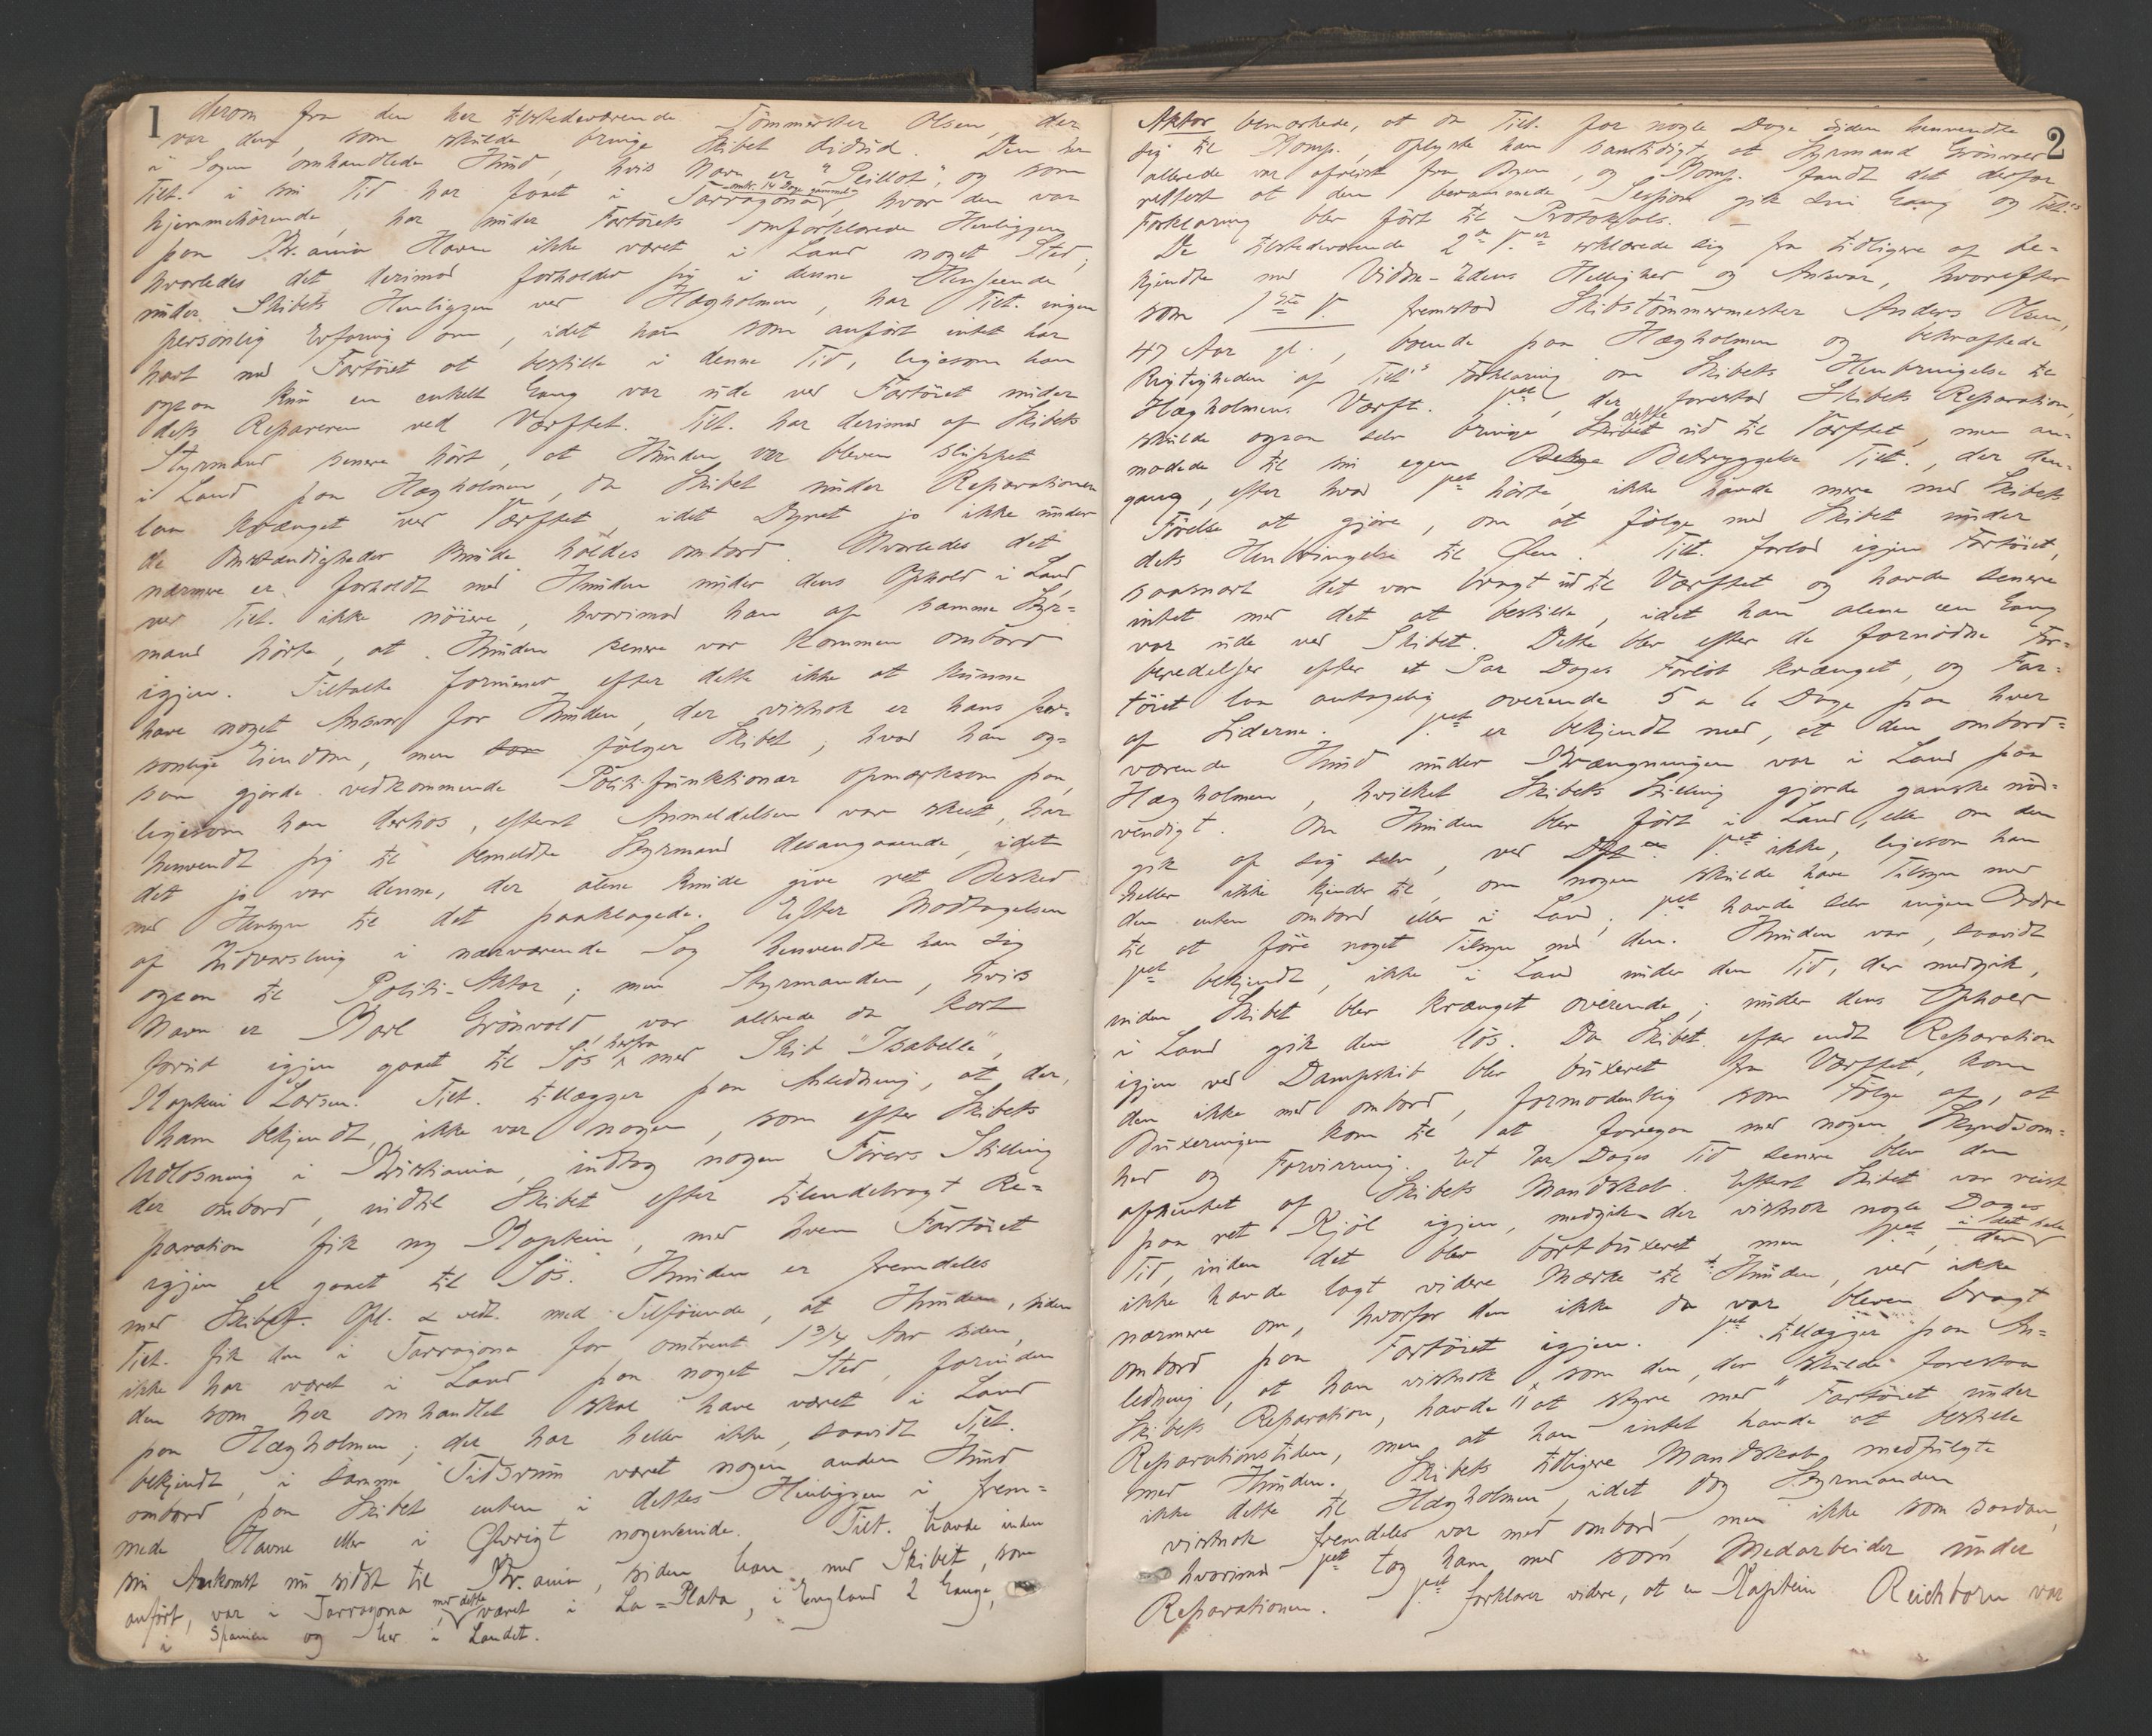 1
derom fra den her tilstedeværende Tømmermester Olsen, der
var den, som skulde bringe Skibet did ud. Den her
i Sagen omhandlede Hund, hvis Navn er "Peillot", og som
Tilt. i sin Tid har faaet i Tarragona, omtr. 14 Dage gammel, hvor den var
hjemmehörende, har under Fartöiets omforklarede Henliggen
paa Kr.ania Havn ikke været i Land noget Sted;
hvorledes det derimod forholder sig i denne Henseende
under Skibets Henliggen ved Hægholmen, har Tilt. ingen
personlig Erfaring om, idet han som anfört intet har
havt med Fartöiet at bestille i denne Tid, ligesom han
ogsaa kun en enkelt Gang var ude ved Fartöiet under
dets Reparation ved Værftet. Tilt. har derimod af Skibets
Styrmand senere hört, at Hunden var bleven sluppet
i Land paa Hægholmen, da Skibet under Reparationen
laa krænget ved Værftet, idet Dyret jo ikke under
de Omstændigheder kunde holdes ombord. Hvorledes det
nærmere er forholdt med Hunden under dens Ophold i Land,
ved Tilt. ikke nöiere, hvorimod han af samme Styr=
mand hörte, at Hunden senere var kommen ombord
igjen. Tiltalte formener efter dette ikke at kunne
have noget Ansvar for Hunden, der vistnok er hans per=
sonlige Eiendom, men som fölger Skibet; hvad han og=
saa gjorde vedkommende Politifunktionær opmærksom paa,
ligesom han derhos, efterat Anmeldelsen var skeet, har
henvendt sig til bemeldte Styrmand desangaaende, idet
det jo var denne, der alene kunde give ret Besked
med Hensyn til det paaklagede. Efter Modtagelsen
af Udvarsling i nærværende Sag henvendte han sig
ogsaa til Politi-Aktor; men Styrmanden, hvis
Navn er Karl Grönvold, var allerede da kort
forud igjen gaaet til Sös herfra med Skib "Isabella",
Kaptein Larsen. Tilt. tillægger paa Anledning, at der,
ham bekjendt, ikke var nogen, som efter Skibets
Udlosning i Kristiania, indtog nogen Förers Stilling
der ombord, indtil Skibet efter tilendebragt Re=
paration fik ny Kaptein, med hvem Fartöiet
igjen er gaaet til Sös. Hunden er fremdeles
med Skibet. Opl. & vedt. med Tilföiende, at Hunden, siden
Tilt. fik den i Tarragona for omtrent 1 3/4 Aar siden,
ikke har været i Land paa noget Sted, forinden
den som her omhandlet skal have været i Land
paa Hægholmen; der har heller ikke, saavidt Tilt.
bekjendt, i samme Tidsrum været nogen anden Hund
ombord paa Skibet enten i dettes Henliggen i frem=
mede Havne eller i Övrigt nogensinde. Tilt. havde inden
sin Ankomst nu sidst til Kr.ania, siden han med Skibet, som
anfört, var i Tarragona, med dette været i La=Plata, i England 2 Gange,
i Spanien og her i Landet.
2
Aktor bemærkede, at da Tilt. for nogle Dage siden henvendte
sig til Komp., oplyste han samtidigt at Styrmand Grönvold
allerede var afreist fra Byen, og Komp. fandt det derfor
rettest at den berammede Session gik sin Gang og Tilt.s
Forklaring blev fört til Protokols. -
De tilstedeværende 2de V.er erklærede sig fra tidligere af be=
kjendte med Vidne-Edens Hellighed og Ansvar, hvorefter
som 1ste V. fremstod Skibstömmermester Anders Olsen,
47 Aar gl., boende paa Hægholmen og bekræftede
Rigtigheden af Tilt.s Forklaring om Skibets Henbringelse til
Hægholmens Værft. V.et, der forestod Skibets Reparation,
skulde ogsaa selv bringe Skibet dette ud til Værftet, men an=
modede til sin egen Betryggelse Tilt., der den=
gang, efter hvad V.et hörte, ikke havde mere med Skibets
Förelse at gjöre, om at fölge med Skibet under
dets Henbringelse til Öen. Tilt. forlod igjen Fartöiet,
saasnart det var bragt ud til Værftet og havde senere
intet med det at bestille, idet han alene een Gang
var ude ved Skibet. Dette blev efter de fornödne For=
beredelser efter et Par Dages Forlöb krænget, og Far=
töiet laa antagelig overende 5 a 6 Dage paa hver
af Siderne. V.et er bekjendt med, at den ombord=
værende Hund under Krængningen var i Land paa
Hægholmen, hvilket Skibets Stilling gjorde ganske nöd=
vendigt. Om Hunden blev fört i Land, eller om den
gik af sig selv, ved V.et ikke, ligesom han
heller ikke kjender til, om nogen skulde have Tilsyn med
den enten ombord eller i Land; V.et havde selv ingen Ordre
til at före noget Tilsyn med den. Hunden var, saavidt
V.et bekjendt, ikke i Land under den Tid, der medgik,
inden Skibet blev krænget overende; under dens Ophold
i Land gik den lös. Da Skibet efter endt Reparation
igjen ved Dampskib blev buxeret fra Værftet, kom
den ikke med ombord, formodentlig som Fölge af, at
Buxeringen kom til at foregaa med nogen Skyndsom=
hed og Forvirring. Et Par Dages Tid senere blev den
afhentet af Skibets Mandskab. Efterat Skibet var reist
paa ret Kjöl igjen, medgik der vistnok nogle Dages
Tid, inden det blev bortbuxeret, men V.et, der i det hele
ikke havde lagt videre Mærke til Hunden, ved ikke
nærmere om, hvorfor den ikke da var bleven bragt
ombord paa Fartöiet igjen. V.et tillægger paa An=
ledning, at han vistnok som den, der skulde forestaa
Skibets Reparation, havde at styre med Fartöiet under
Reparationstiden, men at han intet havde at bestille
med Hunden. Skibets tidligere Mandskab medfulgte
ikke dette til Hægholmen, idet dog Styrmanden
vistnok fremdeles var med ombord, men ikke som saadan,
hvorimod V.et tog ham med som Medarbeider under
Reparationen. V.et forklarer videre, at en Kaptein Reichborn var